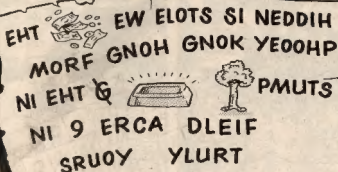 EHT EW ELOTS SI NEDDIH
MORF GNOH GNOK YEOOHP
NI EHT G PMUTS
NI 9 ERCA DLEIF
SRUOY YLURT